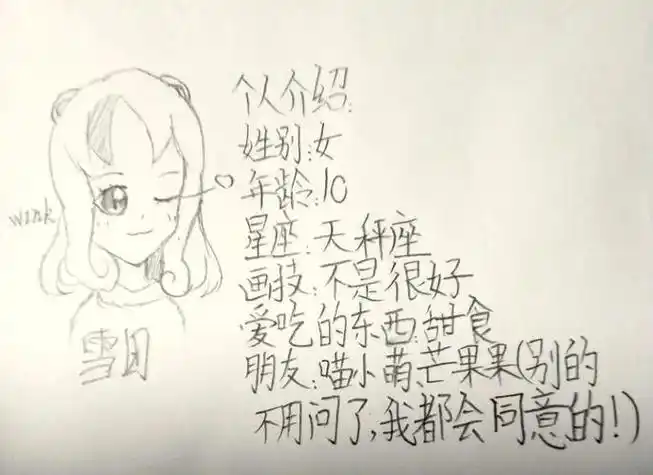 个人介绍:
wink
姓别:女
年龄:10
星座:天秤座
画技:不是很好
爱吃的东西:甜食
雪月
朋友:喵小萌、芒果果(别的
不用问了,我都会同意的!)